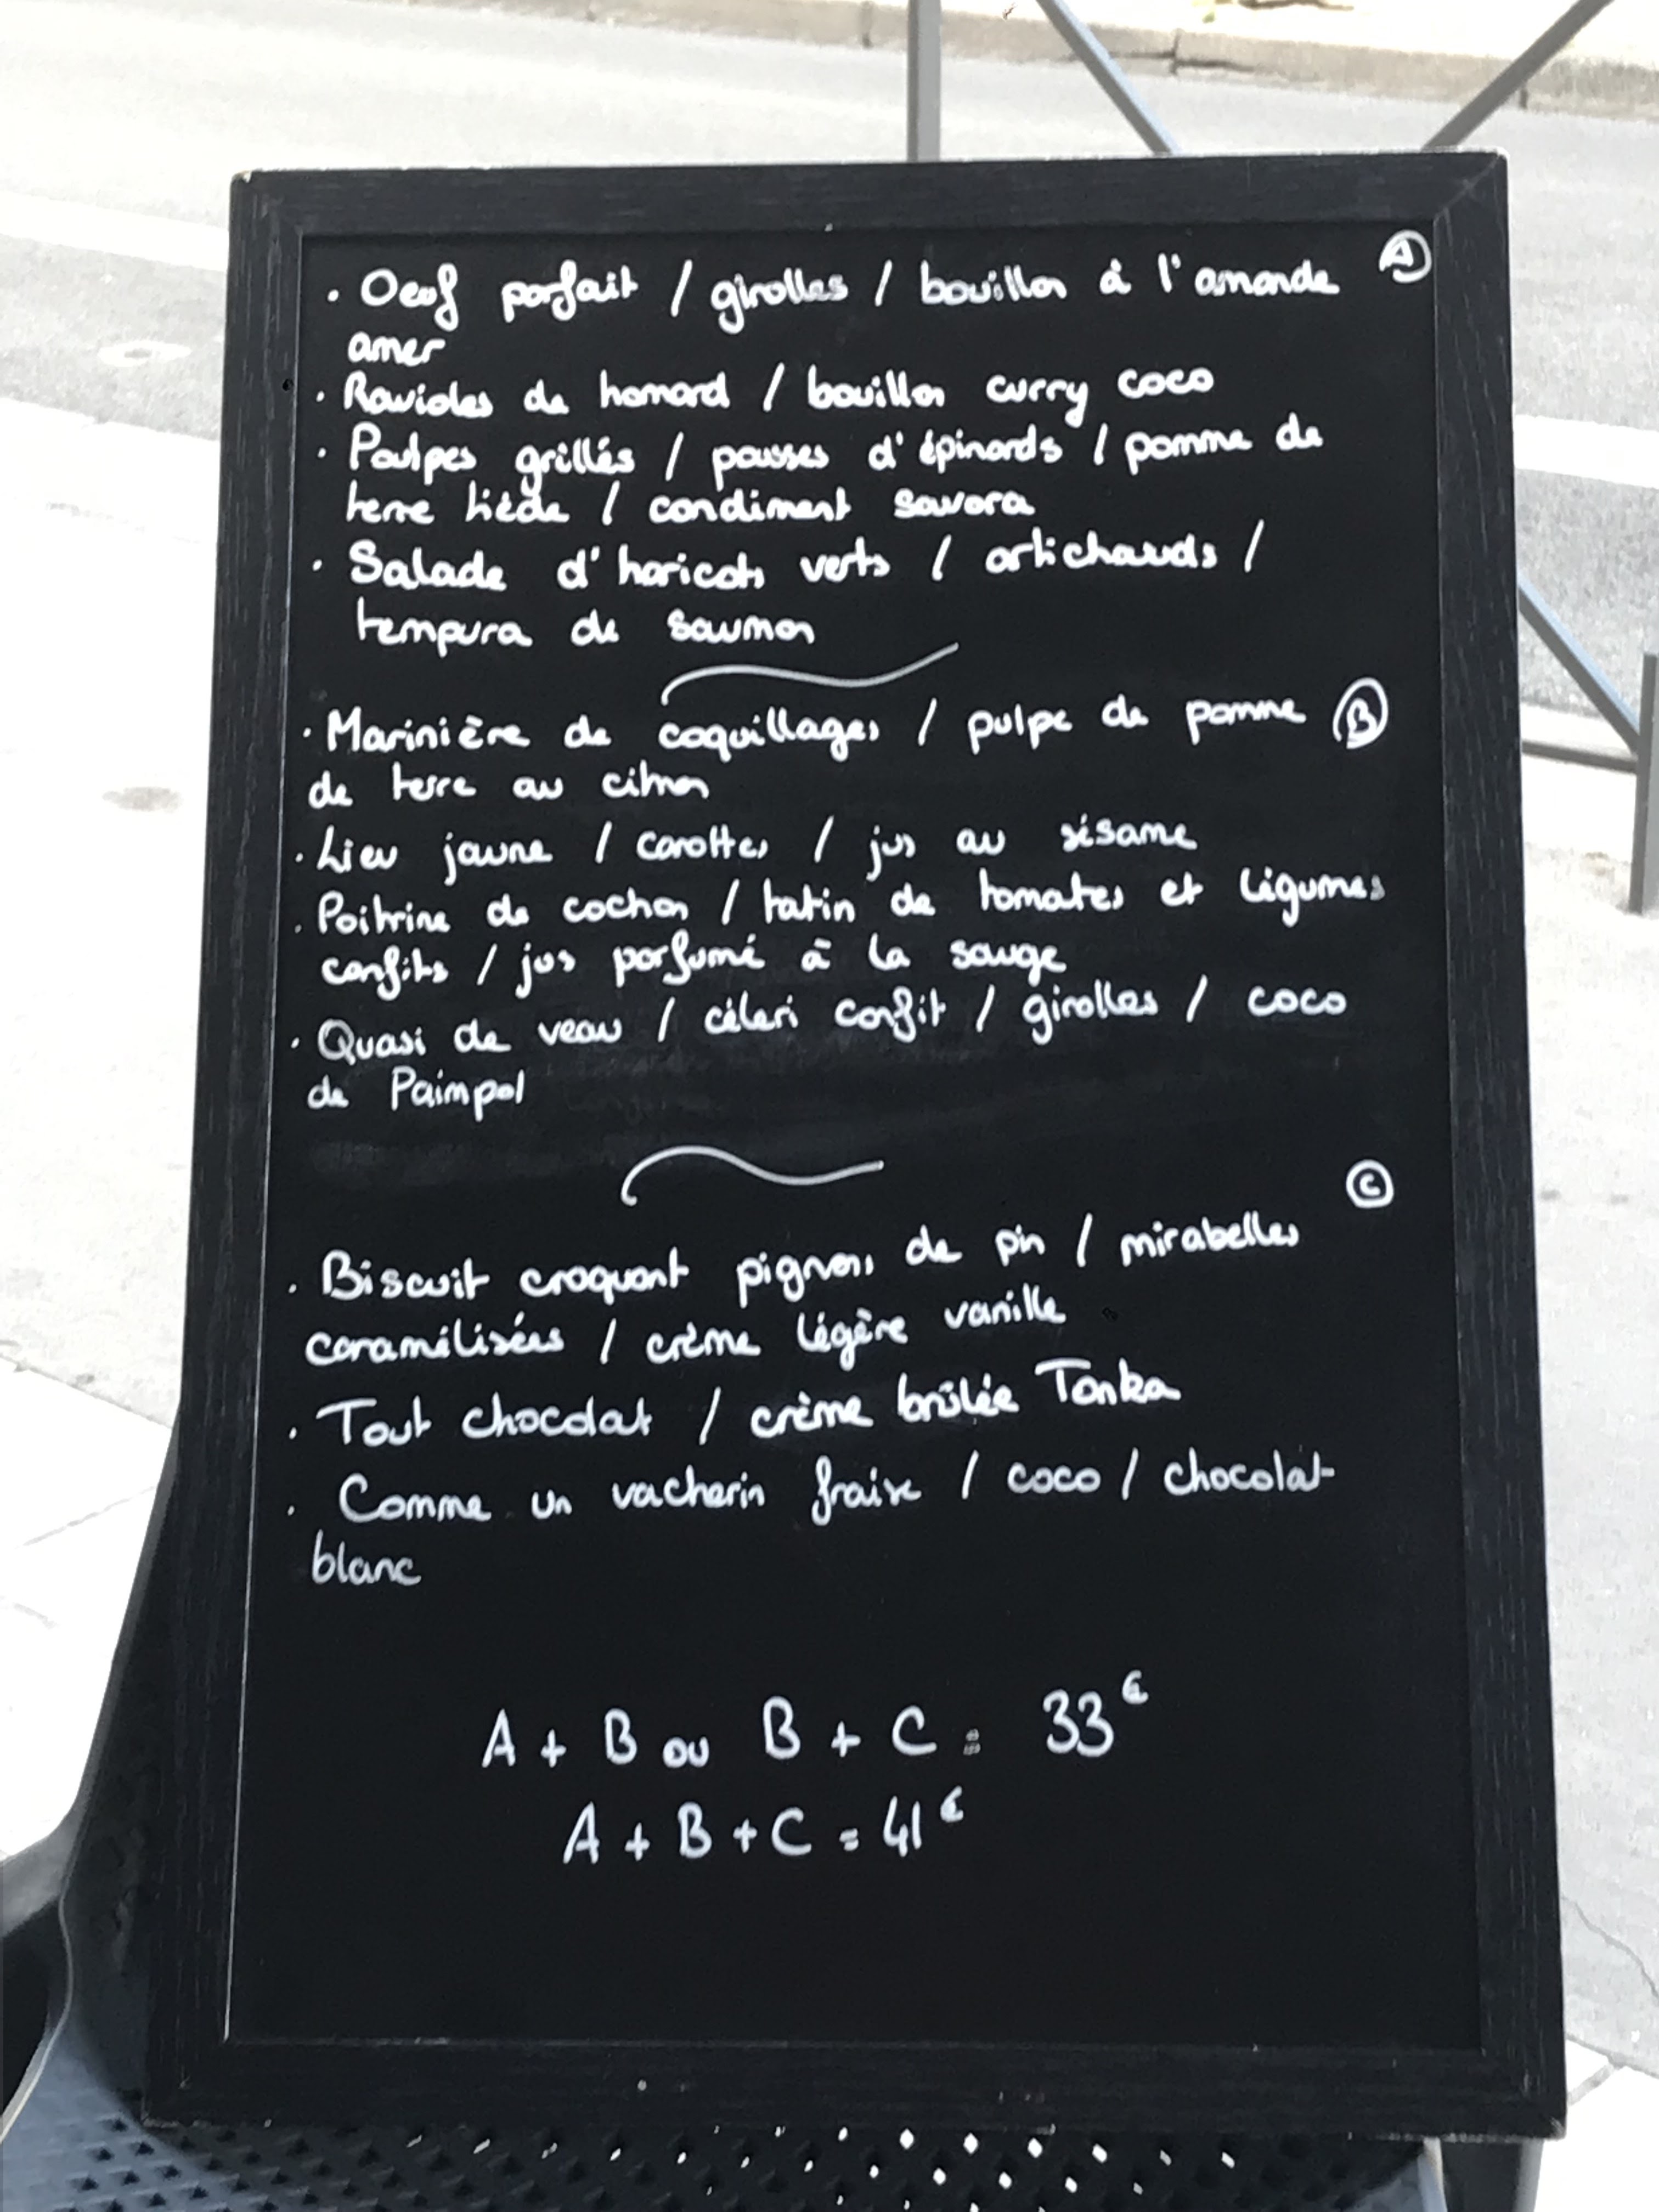 · Oeuf parfait / girolles / bouillon à l'amande (A)
amer
· Ravioles de homard / bouillon curry coco
· Poulpes grillés / pousses d'épinards / pomme de
terre tiède / condiment savora
· Salade d'haricots verts / artichauds /
tempura de saumon
· Marinière de coquillages / pulpe de pomme (B)
de terre au citron
· Lieu jaune / carottes / jus au sésame
· Poitrine de cochon / tatin de tomates et légumes
confits / jus parfumé à la sauge
· Quasi de veau / céleri confit / girolles / coco
de Paimpol
(C)
· Biscuit croquant pignons de pin / mirabelles
caramélisées / crème légère vanille
· Tout chocolat / crème brûlée Tonka
· Comme un vacherin fraise / coco / chocolat
blanc
A + B ou B + C = 33€
A + B + C = 41€